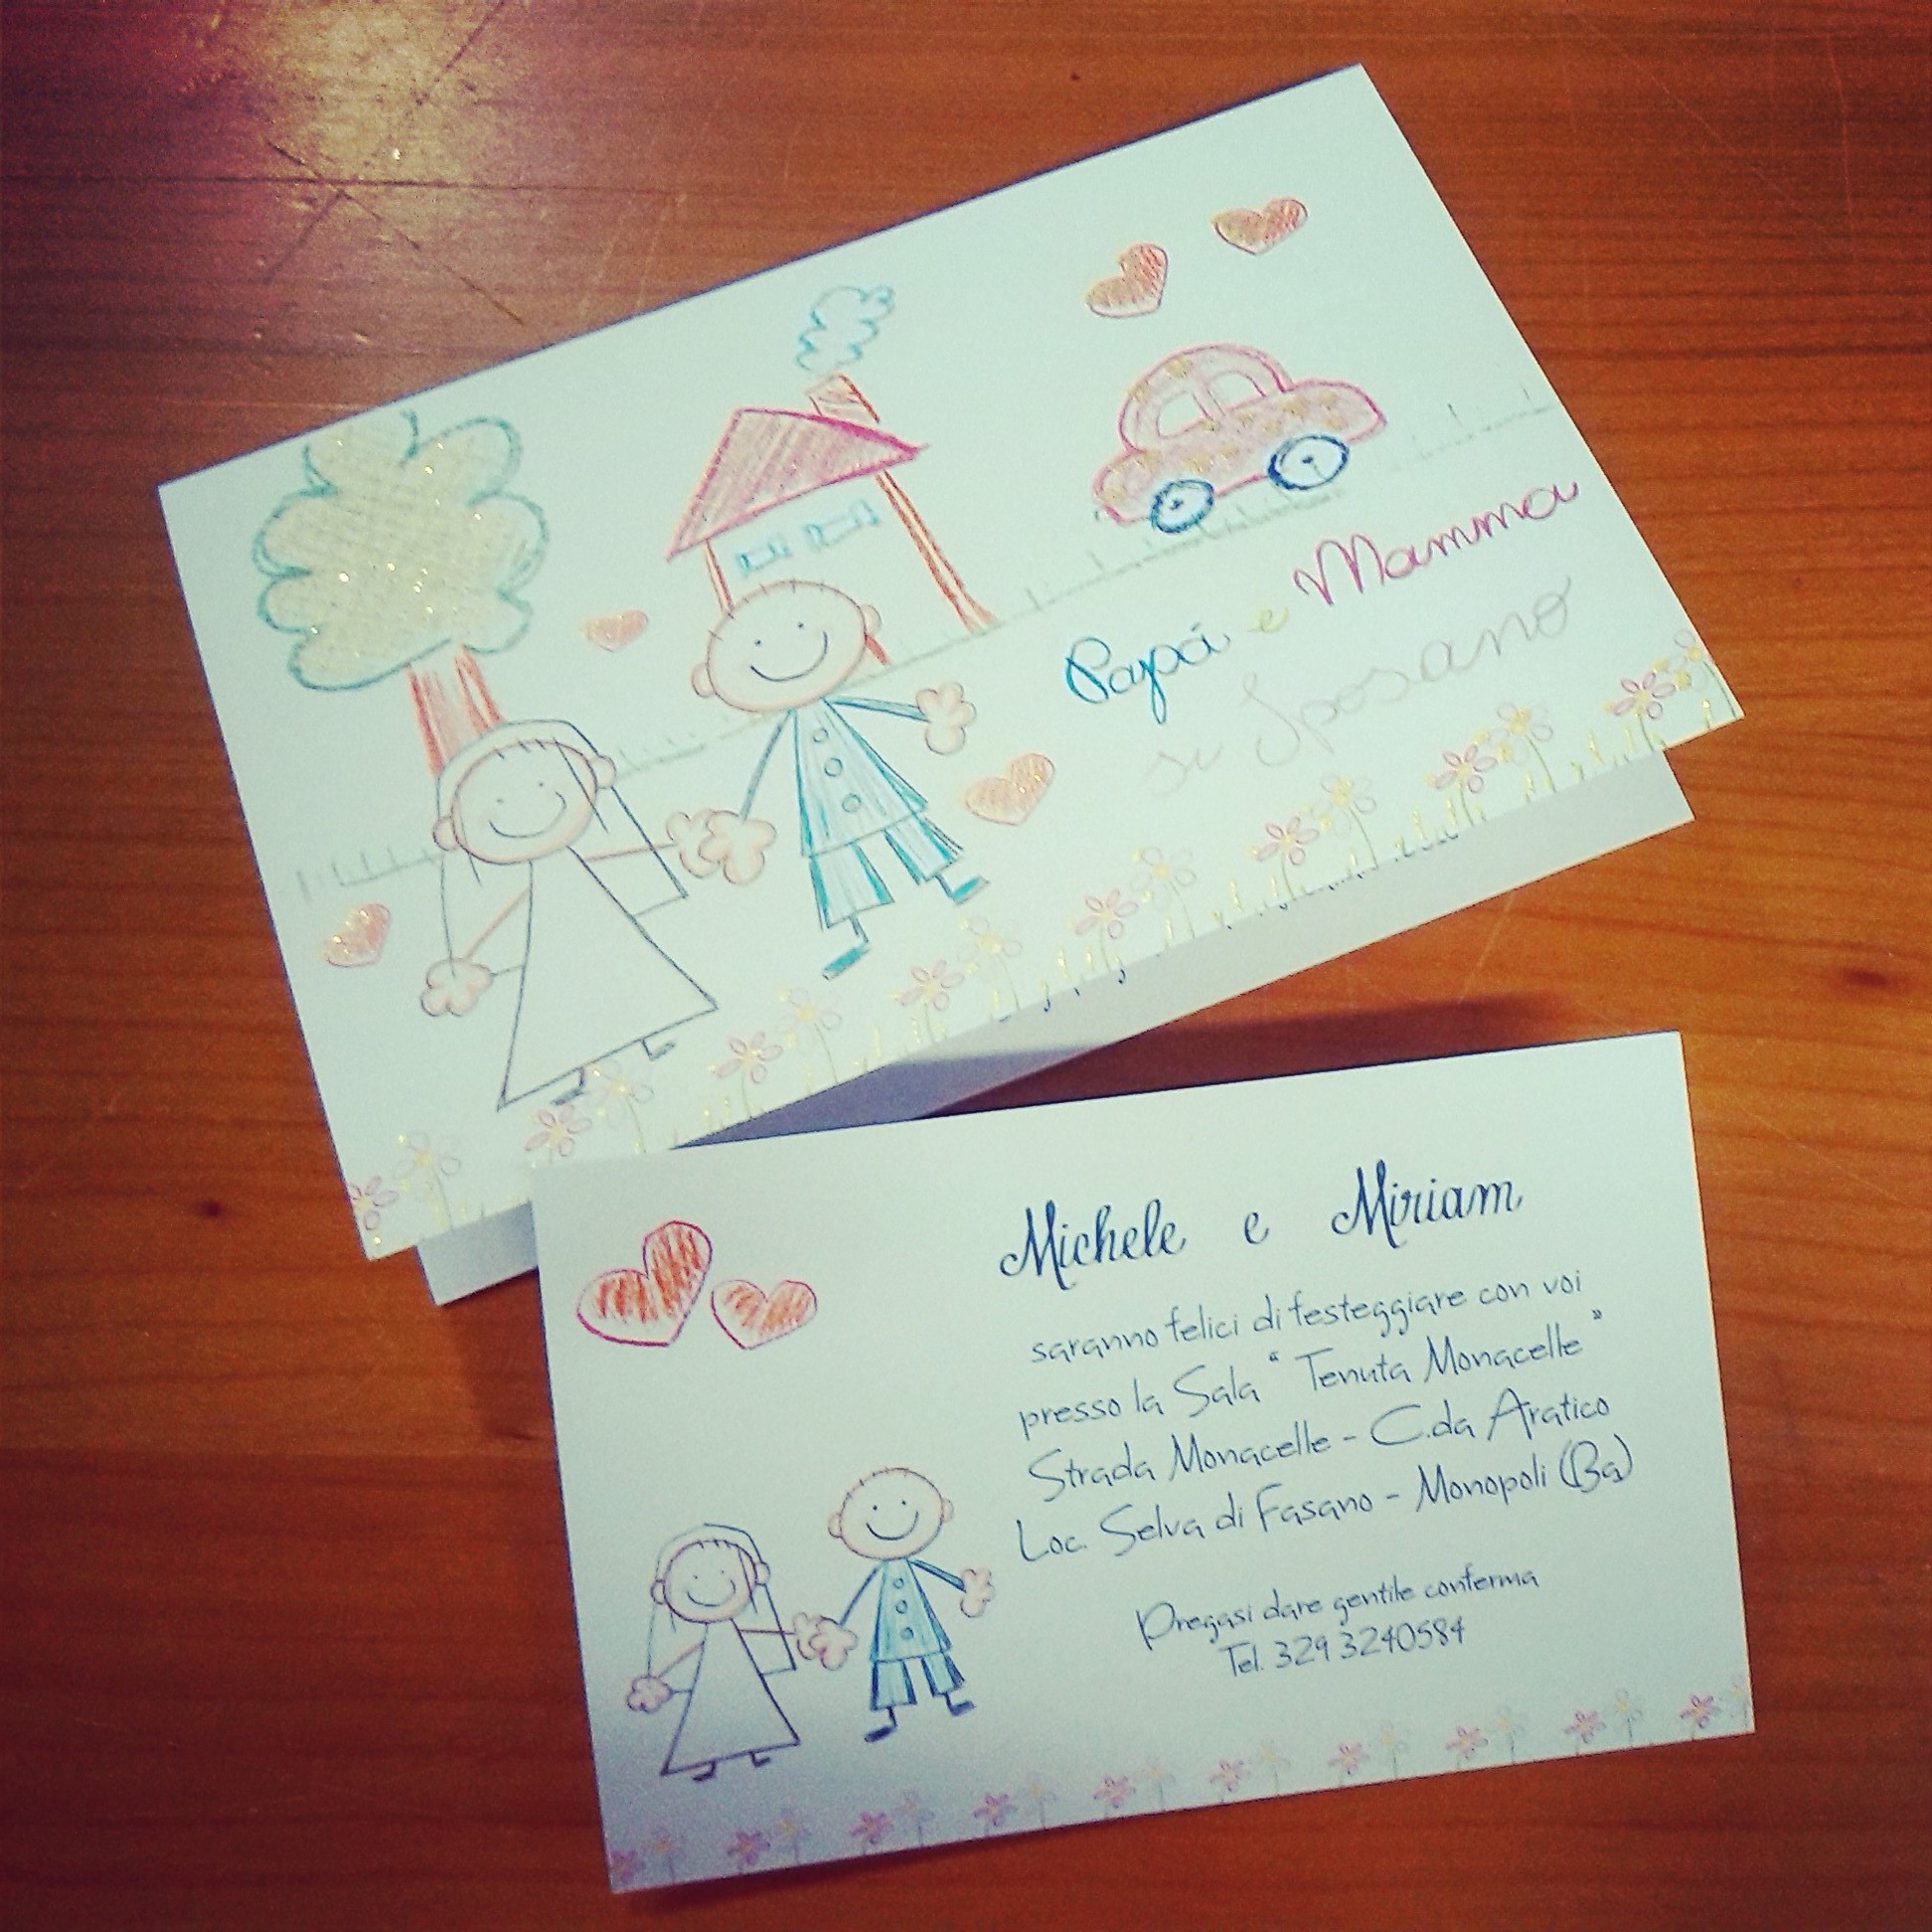 Papá e Mamma
si Sposano
Michele e Miriam
saranno felici di festeggiare con voi
presso la Sala " Tenuta Monacelle "
Strada Monacelle - C.da Aratico
Loc. Selva di Fasano - Monopoli (Ba)
Pregasi dare gentile conferma
Tel. 329 3240584